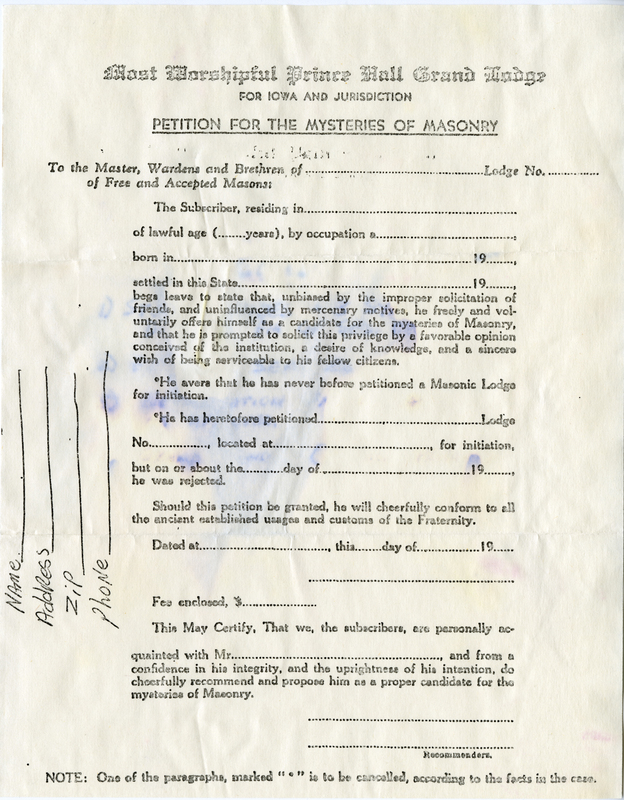 Most Worshipful Prince Hall Grand Lodge
FOR IOWA AND JURISDICTION
PETITION FOR THE MYSTERIES OF MASONRY
To the Master, Wardens and Brethren of..........Lodge No..........
of Free and Accepted Masons:
The Subscriber, residing in..........
of lawful age (........years), by occupation a..........,
born in..........19.......,
settled in this State..........19.......,
begs leave to state that, unbiased by the improper solicitation of
friends, and uninfluenced by mercenary motives, he freely and vol-
untarily offers himself as a candidate for the mysteries of Masonry,
and that he is prompted to solicit this privilege by a favorable opinion
conceived of the institution, a desire of knowledge, and a sincere
wish of being serviceable to his fellow citizens.
*He avers that he has never before petitioned a Masonic Lodge
for initiation.
*He has heretofore petitioned..........Lodge
No.........., located at.........., for initiation,
but on or about the..........day of..........19.......,
he was rejected.
Should this petition be granted, he will cheerfully conform to all
the ancient established usages and customs of the Fraternity.
Dated at.........., this.......day of..........19.......
Fee enclosed, $..........
This May Certify, That we, the subscribers, are personally ac-
quainted with Mr.........., and from a
confidence in his integrity, and the uprightness of his intention, do
cheerfully recommend and propose him as a proper candidate for the
mysteries of Masonry.
Recommenders.
NOTE: One of the paragraphs, marked "*" is to be cancelled, according to the facts in the case.
NAME
Address
Zip
Phone